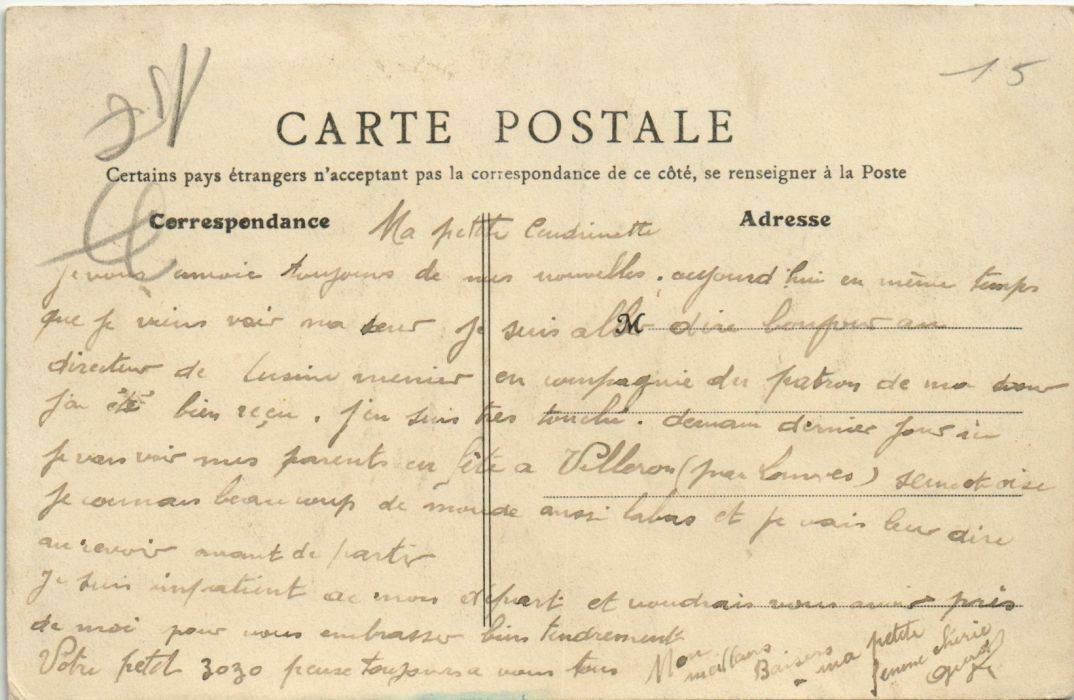 15
CARTE POSTALE
Certains pays étrangers n'acceptant pas la correspondance de ce côté, se renseigner à la Poste
Correspondance
Adresse
Ma petite
je vous envoie toujours de mes nouvelles. aujourd'hui en même temps
que je viens voir ma sœur je suis aller dire bonjour au
M
directeur de lusine menier en compagnie du patron de ma sœur
j'ai été bien reçu. j'en suis très touché. demain dernier jour ici
je vais voir mes parents en fête a Villeron (par Louvres) seine et oise
je connais beaucoup de monde aussi labas et je vais leur dire
au revoir avant de partir
je suis impatient de mon départ et voudrais vous avoir près
de moi pour vous embrasser bien tendrement
Votre petit zozo pense toujours a vous tous
Mon meilleurs Baisers a ma petite femme chérie